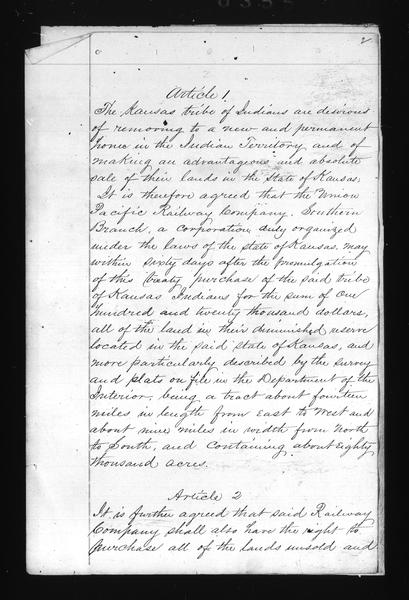 2
Article 1.
The Kansas tribe of Indians are desirous
of removing to a new and permanent
home in the Indian Territory and of
making an advantageous and absolute
sale of their lands in the State of Kansas.
It is therefore agreed that the Union
Pacific Railway Company, Southern
Branch, a corporation duly organized
under the laws of the state of Kansas, may
within sixty days after the promulgation
of this treaty purchase of the said tribe
of Kansas Indians for the sum of One
hundred and twenty thousand dollars,
all of the land in their diminished reserve
located in the said State of Kansas, and
more particularly described by the survey
and plats on file in the Department of the
Interior, being a tract about fourteen
miles in length from East to West and
about nine miles in width from North
to South, and containing about eighty
thousand acres.
Article 2
It is further agreed that said Railway
Company shall also have the right to
purchase all of the lands unsold and